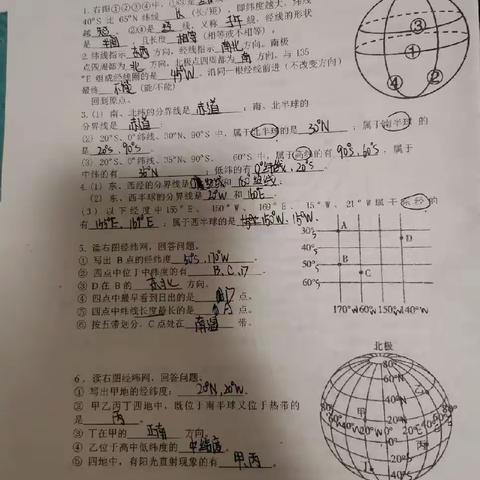 1. 右图①②③④中，
40°S 比 65°N 纬线 长 (长/短)，即纬度越大，纬线
越短。②④是经线，又称子午线，经线的形状
是半圆，且长度相等 (相等或不相等)，
2. 纬线指示东西方向，经线指示南北方向。南极
点四周都为北方向，北极点四周都为南方向。与 135
°E 组成经线圈的是45°W。沿同一根经线前进 (不改变方向)
最终不能 (能/不能)
回到原点。
3. (1) 南、北纬的分界线是赤道；南、北半球的
分界线是赤道
(2) 20°S、0°纬线、30°N、90°S 中，属于北半球的是30°N；属于南半球 的
是20°S、90°S。
(3) 20°S、0°纬线、35°N、90°S、60°S 中，属于高纬的有90°S、60°S，属于
中纬的有35°N；低纬的有0°纬线、20°S。
4. (1) 东、西经的分界线是
(2) 东、西半球的分界线是20°W和160°E。
(3) 以下经度中 155°E、150°W、169°E、15°W、21°W 属于东经的
有155°E、169°E；属于西半球的是150°W、
5. 读右图经纬网，回答问题。
① 写出 B 点的经纬度50°S，170°W。
② 四点中位于中纬度的有B、C、D。
③ D 在 B 的东北方向。
④ 四点中最早看到日出的是点。
⑤ 四点中纬线长度最长的是点。
⑥ 按五带划分，C 点处在南温带。
30°S
40°S
50°S
60°S
A
D
B
C
170°W 160°W 150°W 140°W
6．读右图经纬网，回答问题。
① 写出甲地的经纬度：20°N,20°W.
② 甲乙丙丁四地中，既位于南半球又位于热带的
是丙。
③ 丁在甲的正南方向。
④ 乙位于高中低纬度的中纬度。
⑤ 四地中，有阳光直射现象的有甲、丙
北极
80°N
60°N
40°N
20°N
20°S
40°S
甲
乙
丙
①
②
③
④